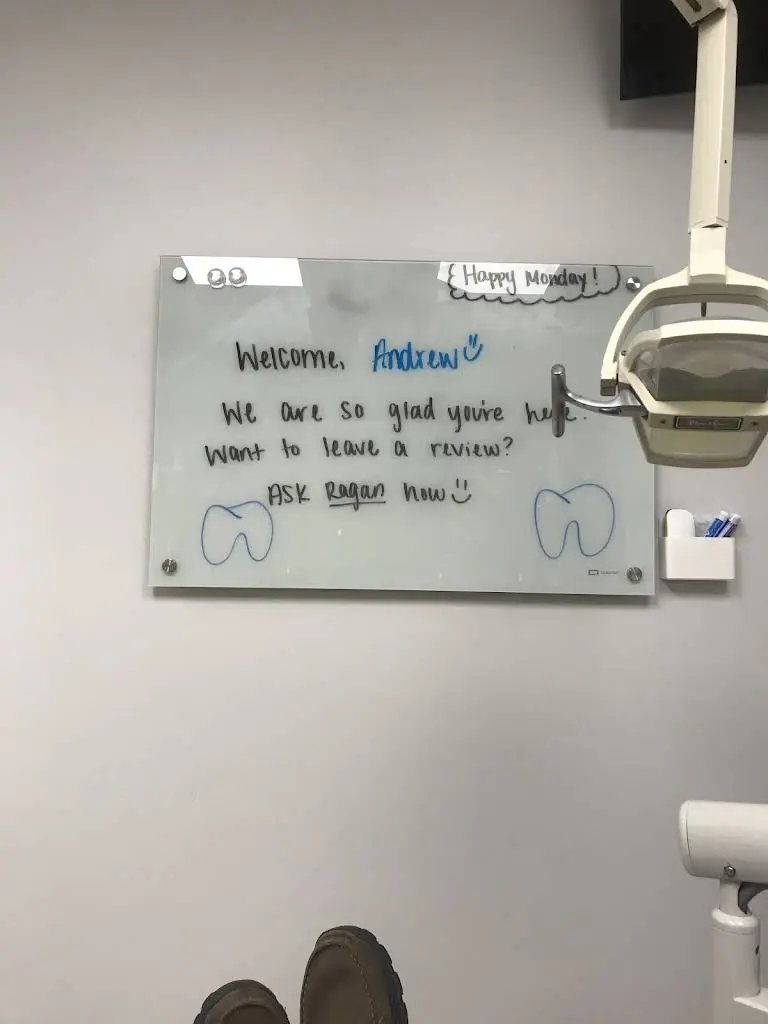 Happy Monday!
Welcome, Andrew
We are so glad you're here.
Want to leave a review?
ASK Ragan how